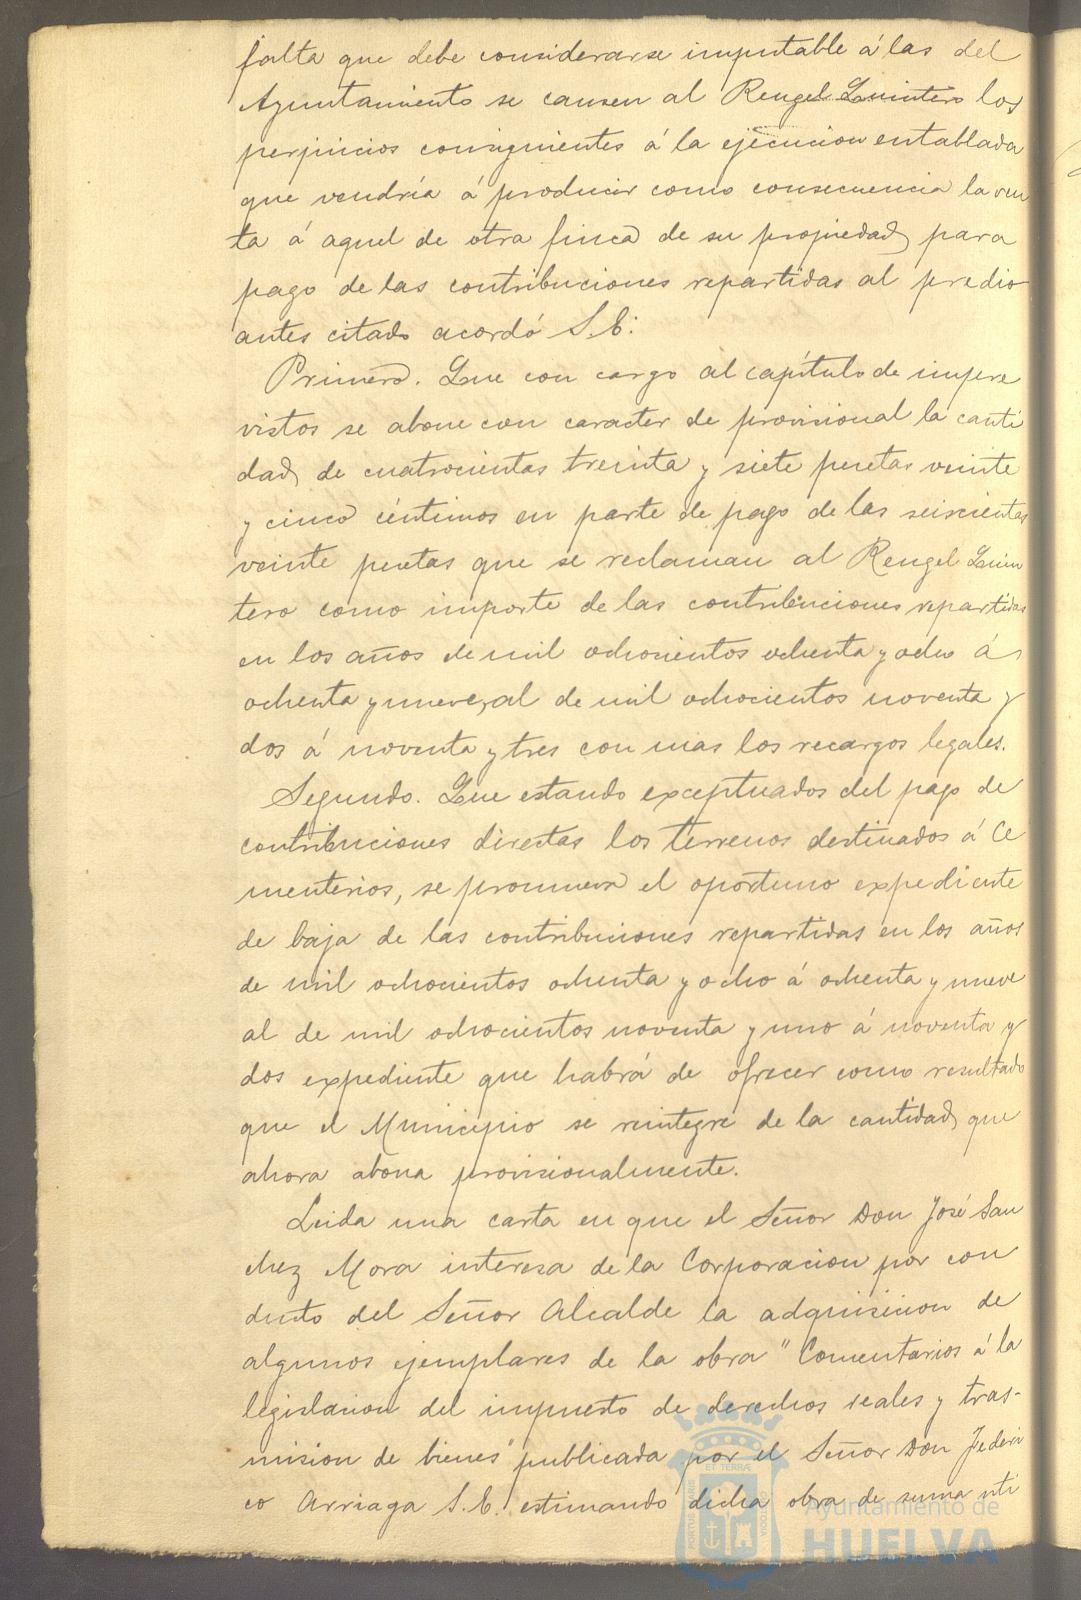 falta que debe considerarse imputable á las del
Ayuntamiento se causen al Rengel Quintero los
perjuicios consiguientes á la ejecucion entablada
que vendría á producir como consecuencia la ven
ta á aquel de otra finca de su propiedad, para
pago de las contribuciones repartidas al predio
antes citado acordó S. E:
Primero. Que con cargo al capítulo de impre
vistos se abone con caracter de provisional la canti
dad, de cuatrocientas treinta y siete pesetas veinte
y cinco céntimos en parte de pago de las seiscientas
veinte pesetas que se reclaman al Rengel Quin
tero como importe de las contribuciones repartidas
en los años de mil ochocientos ochenta y ocho á
ochenta y nueve, al de mil ochocientos noventa y
dos á noventa y tres con mas los recargos legales.
Segundo. Que estando exceptuados del pago de
contribuciones directas los terrenos destinados á Ce
menterios, se promueva el oportuno expediente
de baja de las contribuciones repartidas en los años
de mil ochocientos ochenta y ocho á ochenta y nueve
al de mil ochocientos noventa y uno á noventa y
dos expediente que habrá de ofrecer como resultado
que el Municipio se reintegre de la cantidad, que
ahora abona provisionalmente.
Leida una carta en que el Señor Don José San
chez Mora interesa de la Corporacion por con
ducto del Señor Alcalde la adquisicion de
algunos ejemplares de la obra "Comentarios á la
legislacion del impuesto de derechos reales y tras-
mision de bienes" publicada por el Señor Don Federi
co Arriaga S. E. estimando dicha obra de suma uti
Ayuntamiento de
HUELVA